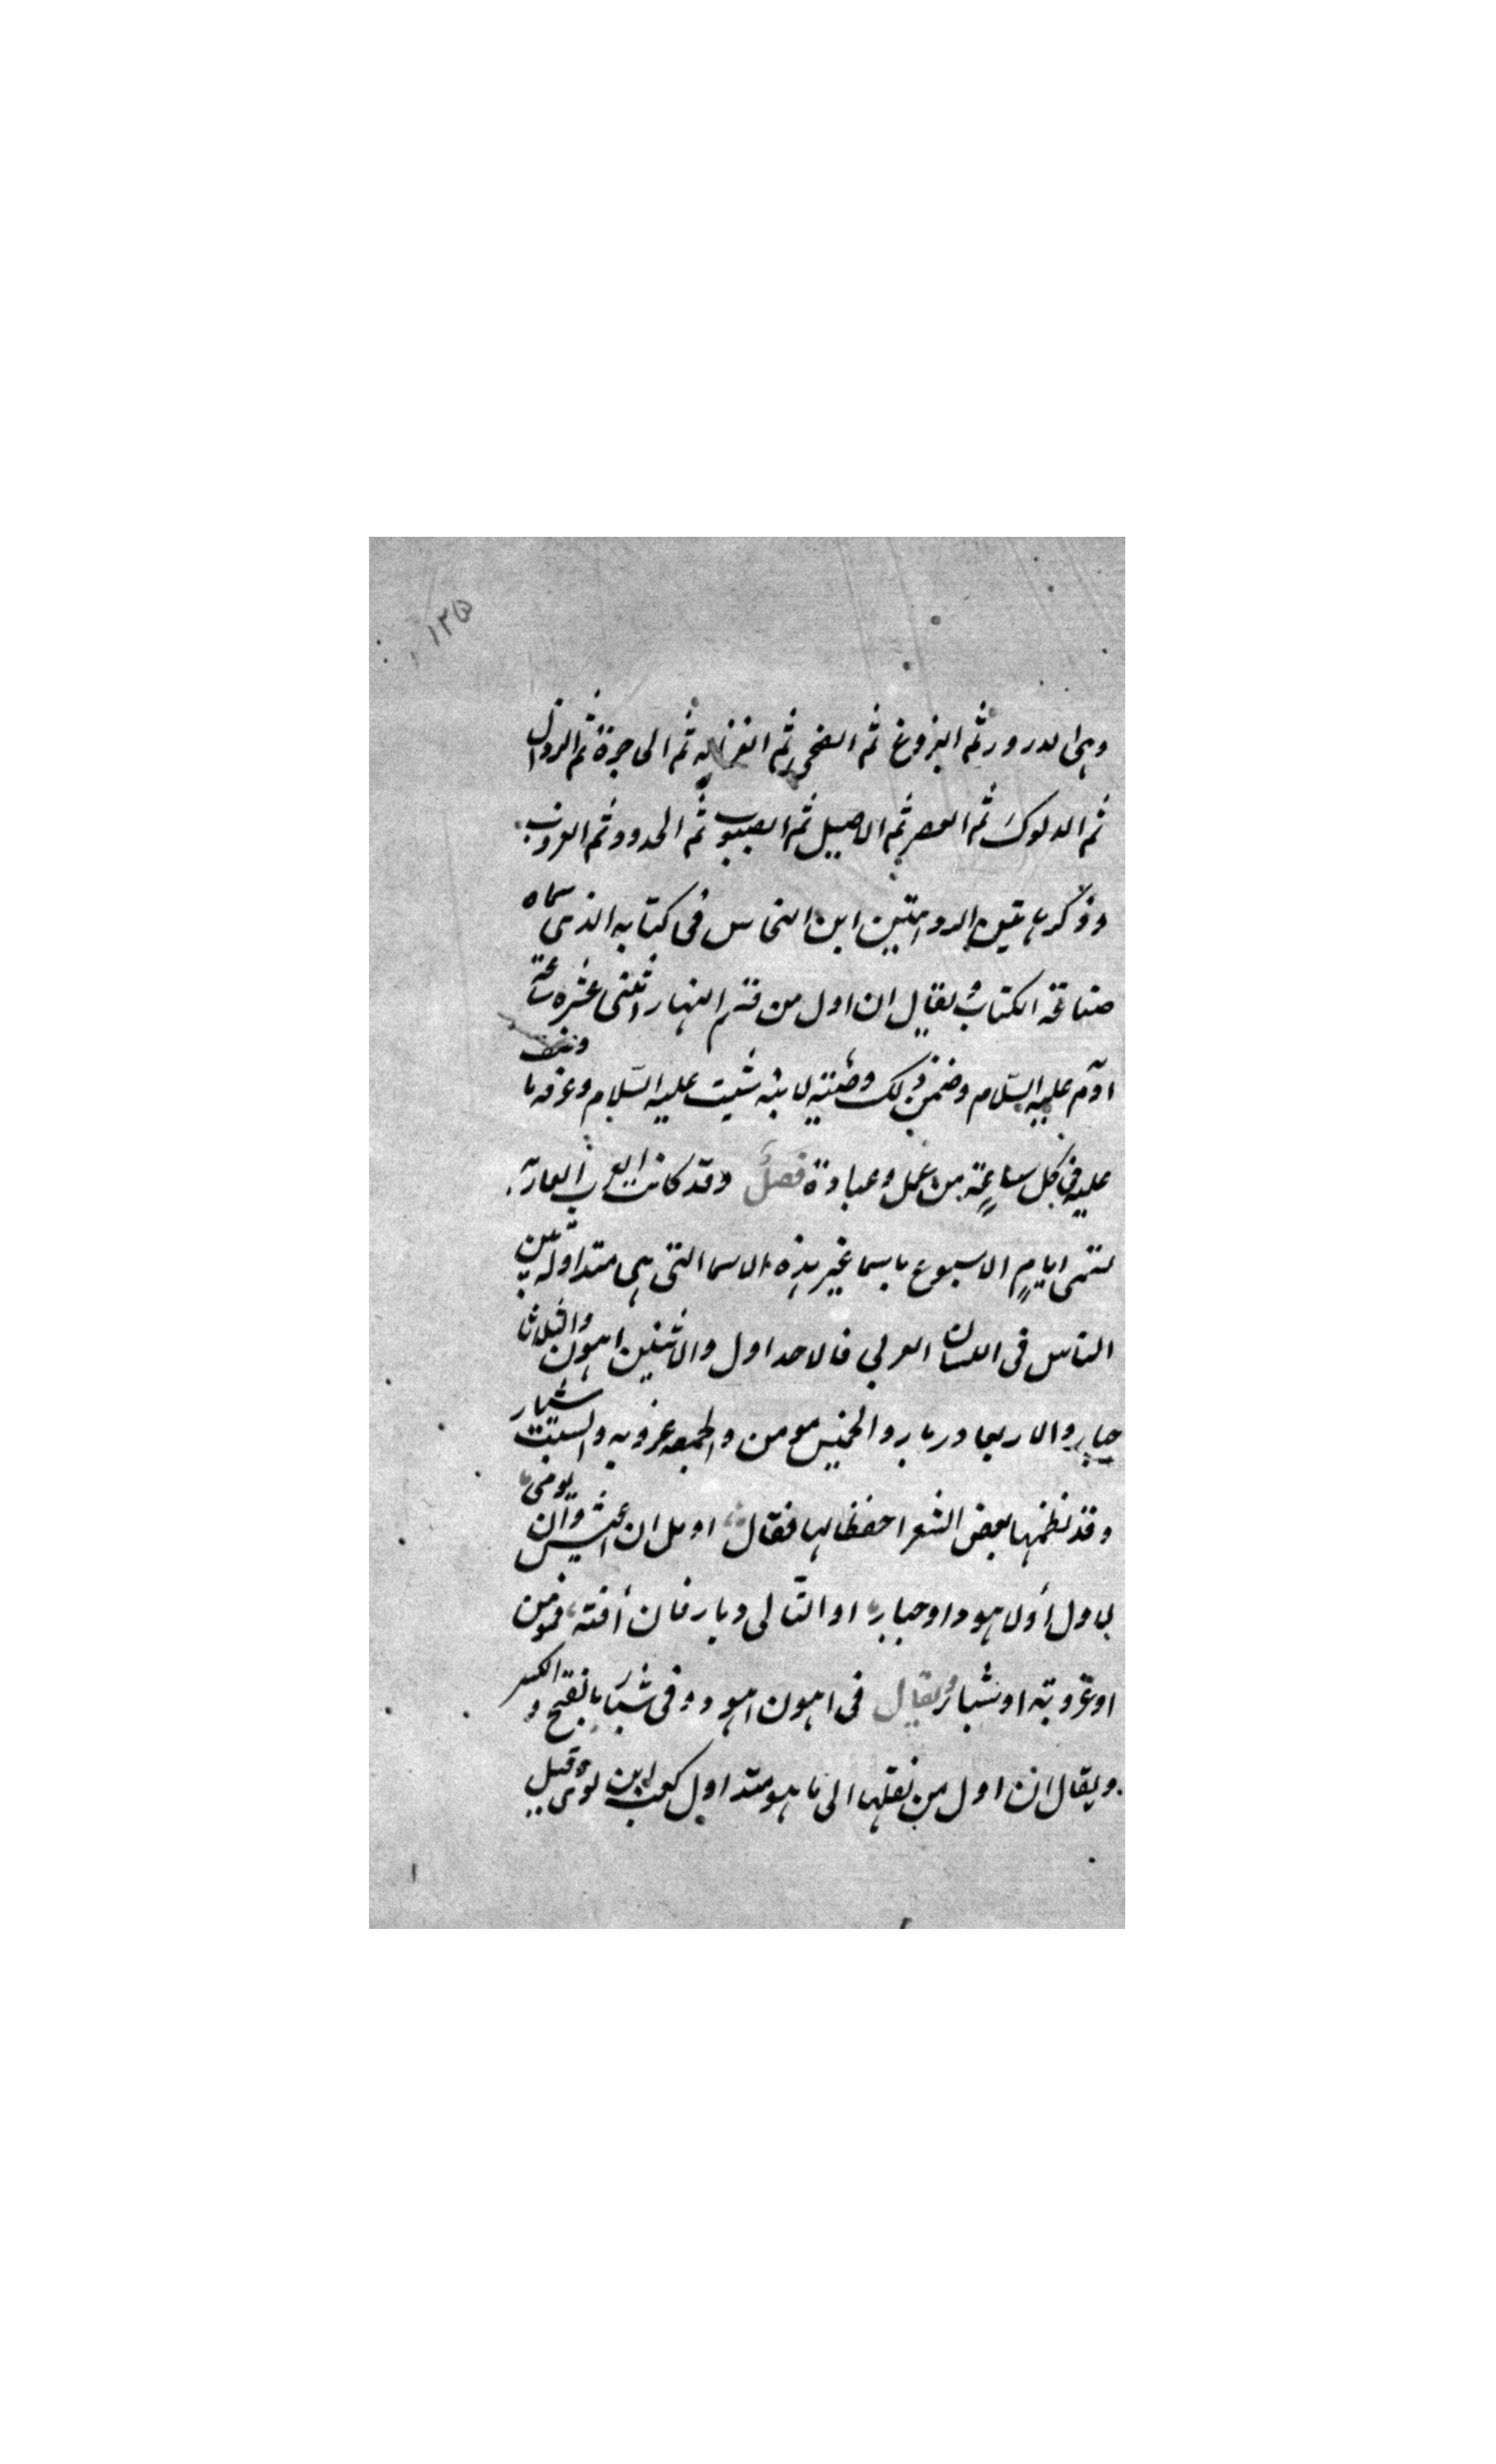 ١٢٥
وهى الدرور ثم البزوغ ثم الضحى ثم الغزاله ثم الهاجرة ثم الزوال
ثم الدلوك ثم العصر ثم الاصيل ثم الصبوب ثم الحدود ثم الغروب
وذكر هاتين الروايتين ابن النحاس فى كتابه الذى سماه
صناعة الكتاب ويقال ان اول من قسم النهار اثنتى عشره ساعة
ادم عليه السلام وضمن ذلك وصيته لابنه شيت عليه السلام وعرفه ما
عليه فى كل ساعة من عمل وعبادة فصل وقد كانت العرب العاربه
تسمى ايام الاسبوع باسما غير هذه الاسما التى هى متداوله بين
الناس فى اللسان العربى فالاحد اول والاثنين اهون والثلاثا
جبار والاربعا دبار والخميس مومن والجمعه عروبه والسبت شيار
وقد نظمها بعض الشعرا حفظا لها فقال اومل ان اعيش وان يومى
باول أولا هود او جبار او التالى دبار فان أفته فمومن
او عروبة او شيار ويقال فى اهون اهود وفى شيار بالفتح والكسر
ويقال ان اول من نقلها الى ما هو متداول كعب ابن لوى وقيل